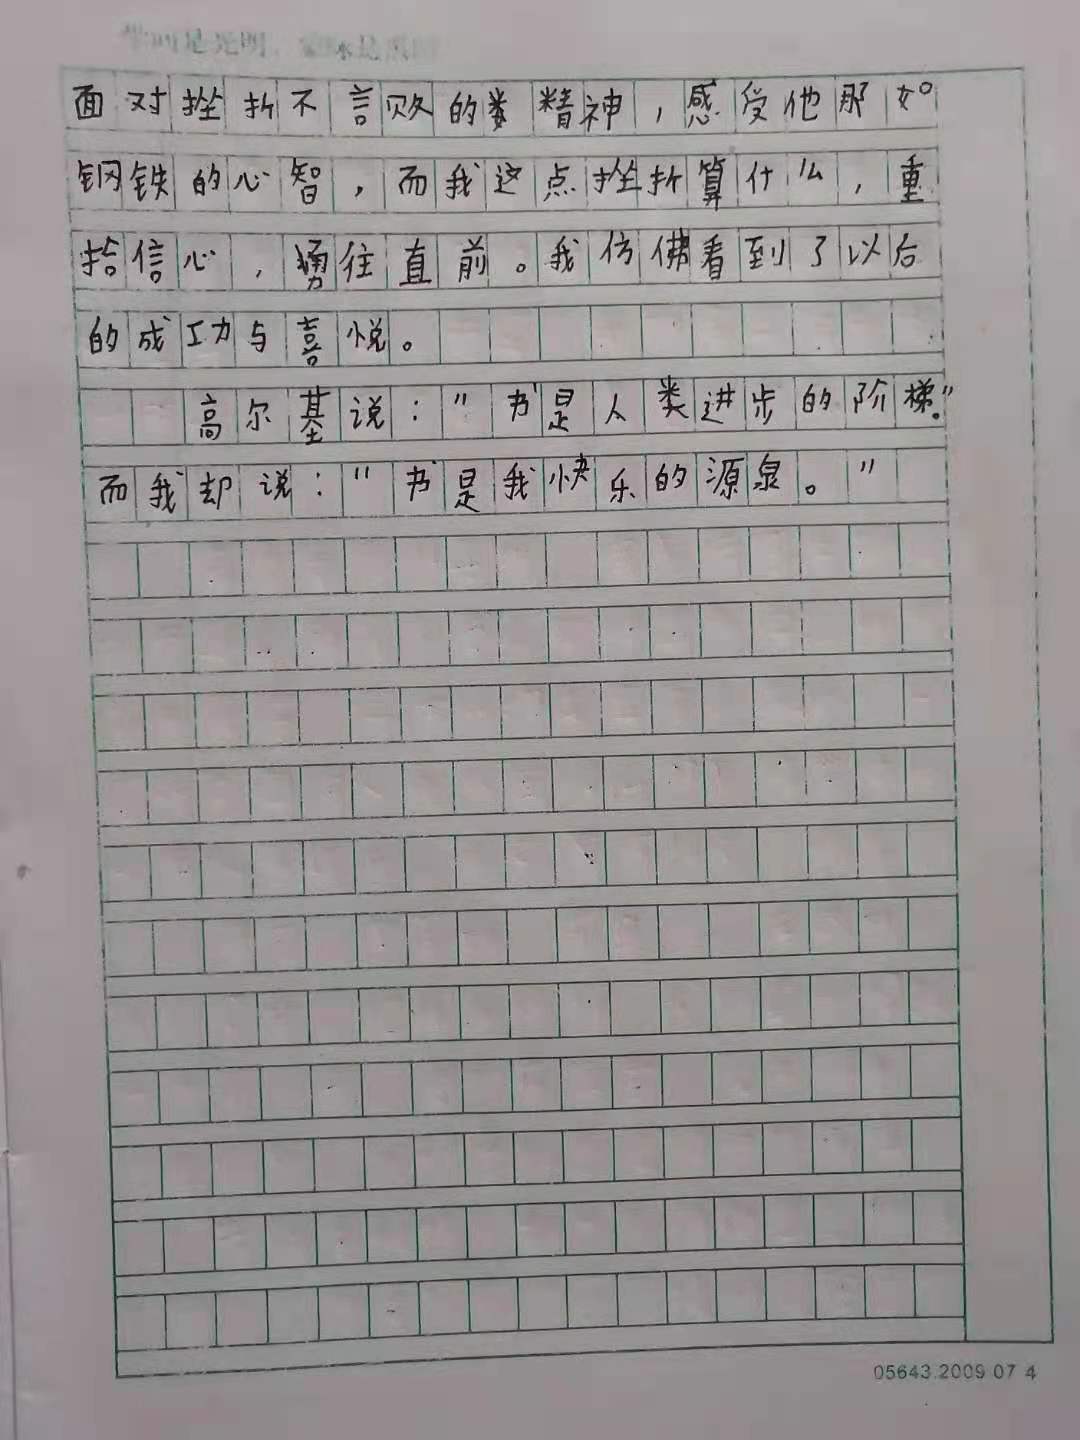 面对挫折不言败的精神,感受他那如
钢铁的心智,而我这点挫折算什么,重
拾信心,勇往直前。我仿佛看到了以后
的成功与喜悦。
高尔基说:"书是人类进步的阶梯。"
而我却说:"书是我快乐的源泉。"
05643.2009.07 4